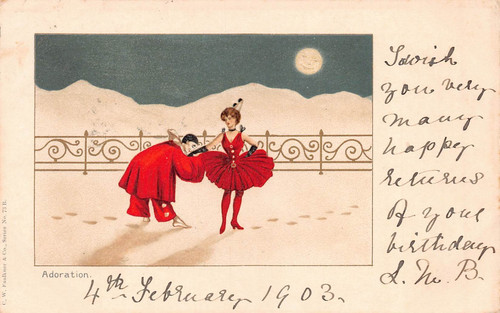 I wish
you very
many
happy
returns
of your
birthday
L. M. B.
Adoration.
4th February 1903.
C. W. Faulkner & Co., Series No. 221 B.